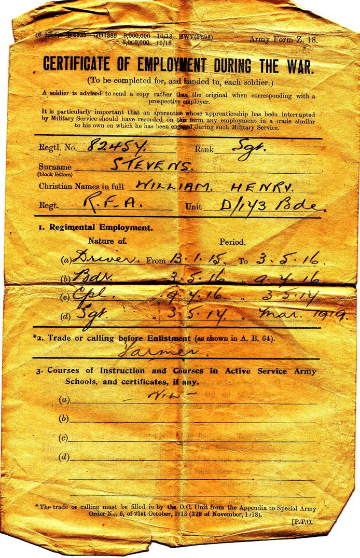 Army Form Z. 18.
CERTIFICATE OF EMPLOYMENT DURING THE WAR.
(To be completed for, and handed to, each soldier.)
A soldier is advised to send a copy rather than the original when corresponding with a
prospective employer.
It is particularly important that an apprentice whose apprenticeship has been interrupted
by Military Service should have recorded on this form any employment in a trade similar
to his own on which he has been engaged during such Military Service.
Regtl. No. 82454. Rank Sgt.
Surname STEVENS.
(block letters)
Christian Names in full WILLIAM HENRY.
Regt. R.F.A. Unit D/143 Bde.
1. Regimental Employment.
Nature of. Period.
(a) Driver. From 13.1.15. To 3.5.16.
(b) Bdr 3.5.16 " 9.4.16
(c) Cpl. 9.4.16 " 3.5.17
(d) Sgt. 3.5.17 " Mar. 1919.
*2. Trade or calling before Enlistment (as shown in A. B. 64).
Farmer
3. Courses of Instruction and Courses in Active Service Army
Schools, and certificates, if any.
(a)
(b)
(c)
(d)
* The trade or calling must be filled in by the O.C. Unit from the Appendix to Special Army
Order No. 8, of 21st October, 1918 (329 of November, 1918).
[P.T.O.